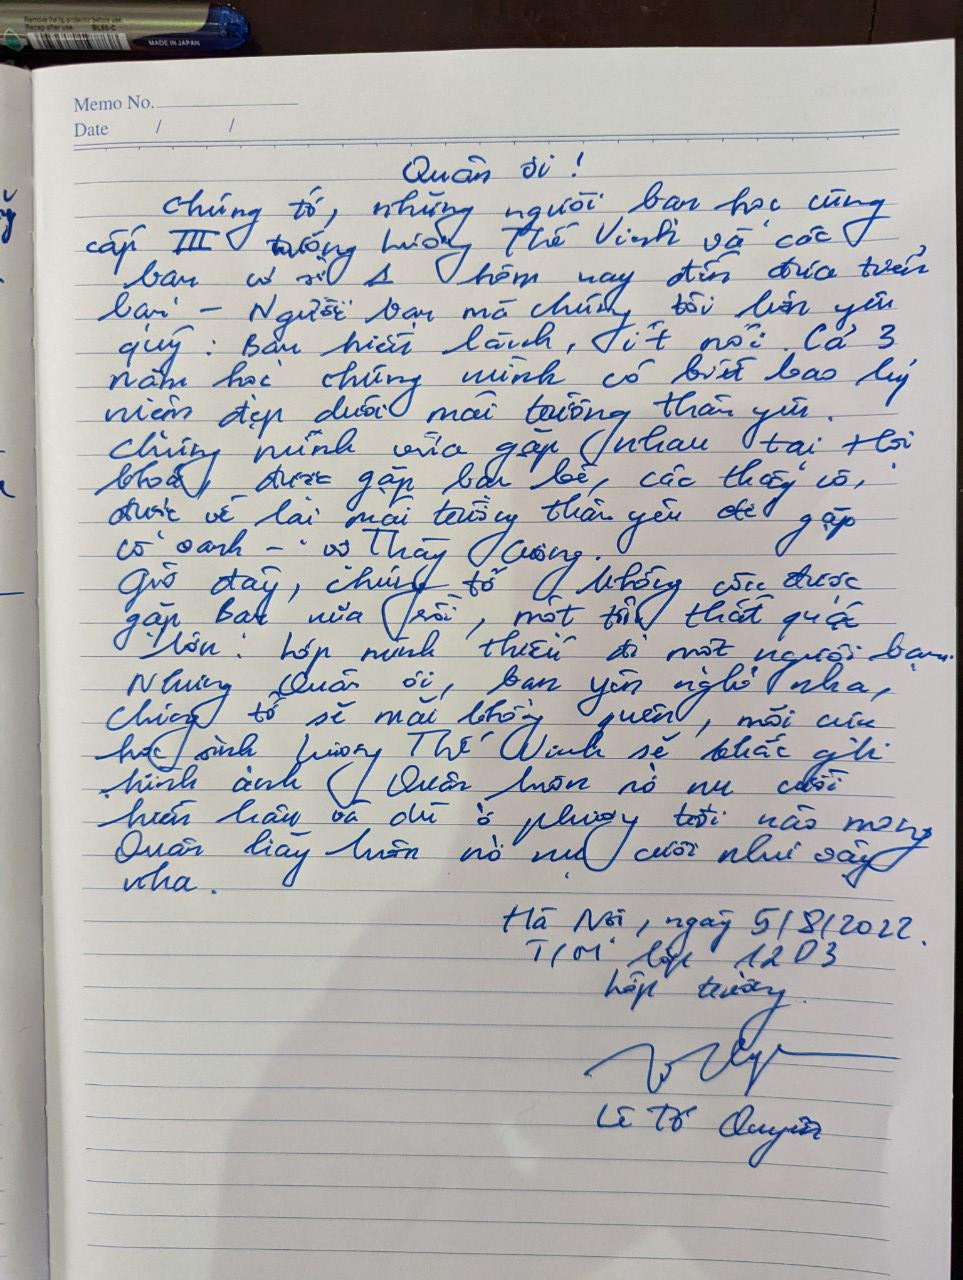 Remove the tip protector before use.
Recap after use. BL60-C
MADE IN JAPAN
Memo No.
Date / /
Quân ơi!
Chúng tớ, những người bạn học cùng
cấp III trường Lương Thế Vinh và các
bạn cơ sở 1 hôm nay đến đưa tiễn
bạn – Người bạn mà chúng tôi luôn yêu
quý: Bạn hiền lành, ít nói. Cả 3
năm học chúng mình có biết bao kỷ
niệm đẹp dưới mái trường thân yêu.
Chúng mình vừa gặp nhau tại Hội
khoá, được gặp bạn bè, các thầy cô,
được về lại mái trường thân yêu để gặp
cô Oanh – Thầy Cương.
Giờ đây, chúng tớ không còn được
gặp bạn nữa rồi, một tổn thất quá
lớn: lớp mình thiếu đi một người bạn.
Nhưng Quân ơi, bạn yên nghỉ nha,
chúng tớ sẽ mãi không quên, mỗi cựu
học sinh Lương Thế Vinh sẽ khắc ghi
hình ảnh Quân luôn nở nụ cười
hiền hậu và dù ở phương trời nào mong
Quân hãy luôn nở nụ cười như vậy
nha.
Hà Nội, ngày 5/8/2022.
T/M lớp 12D3
Lớp trưởng
Lê Tố Quyên